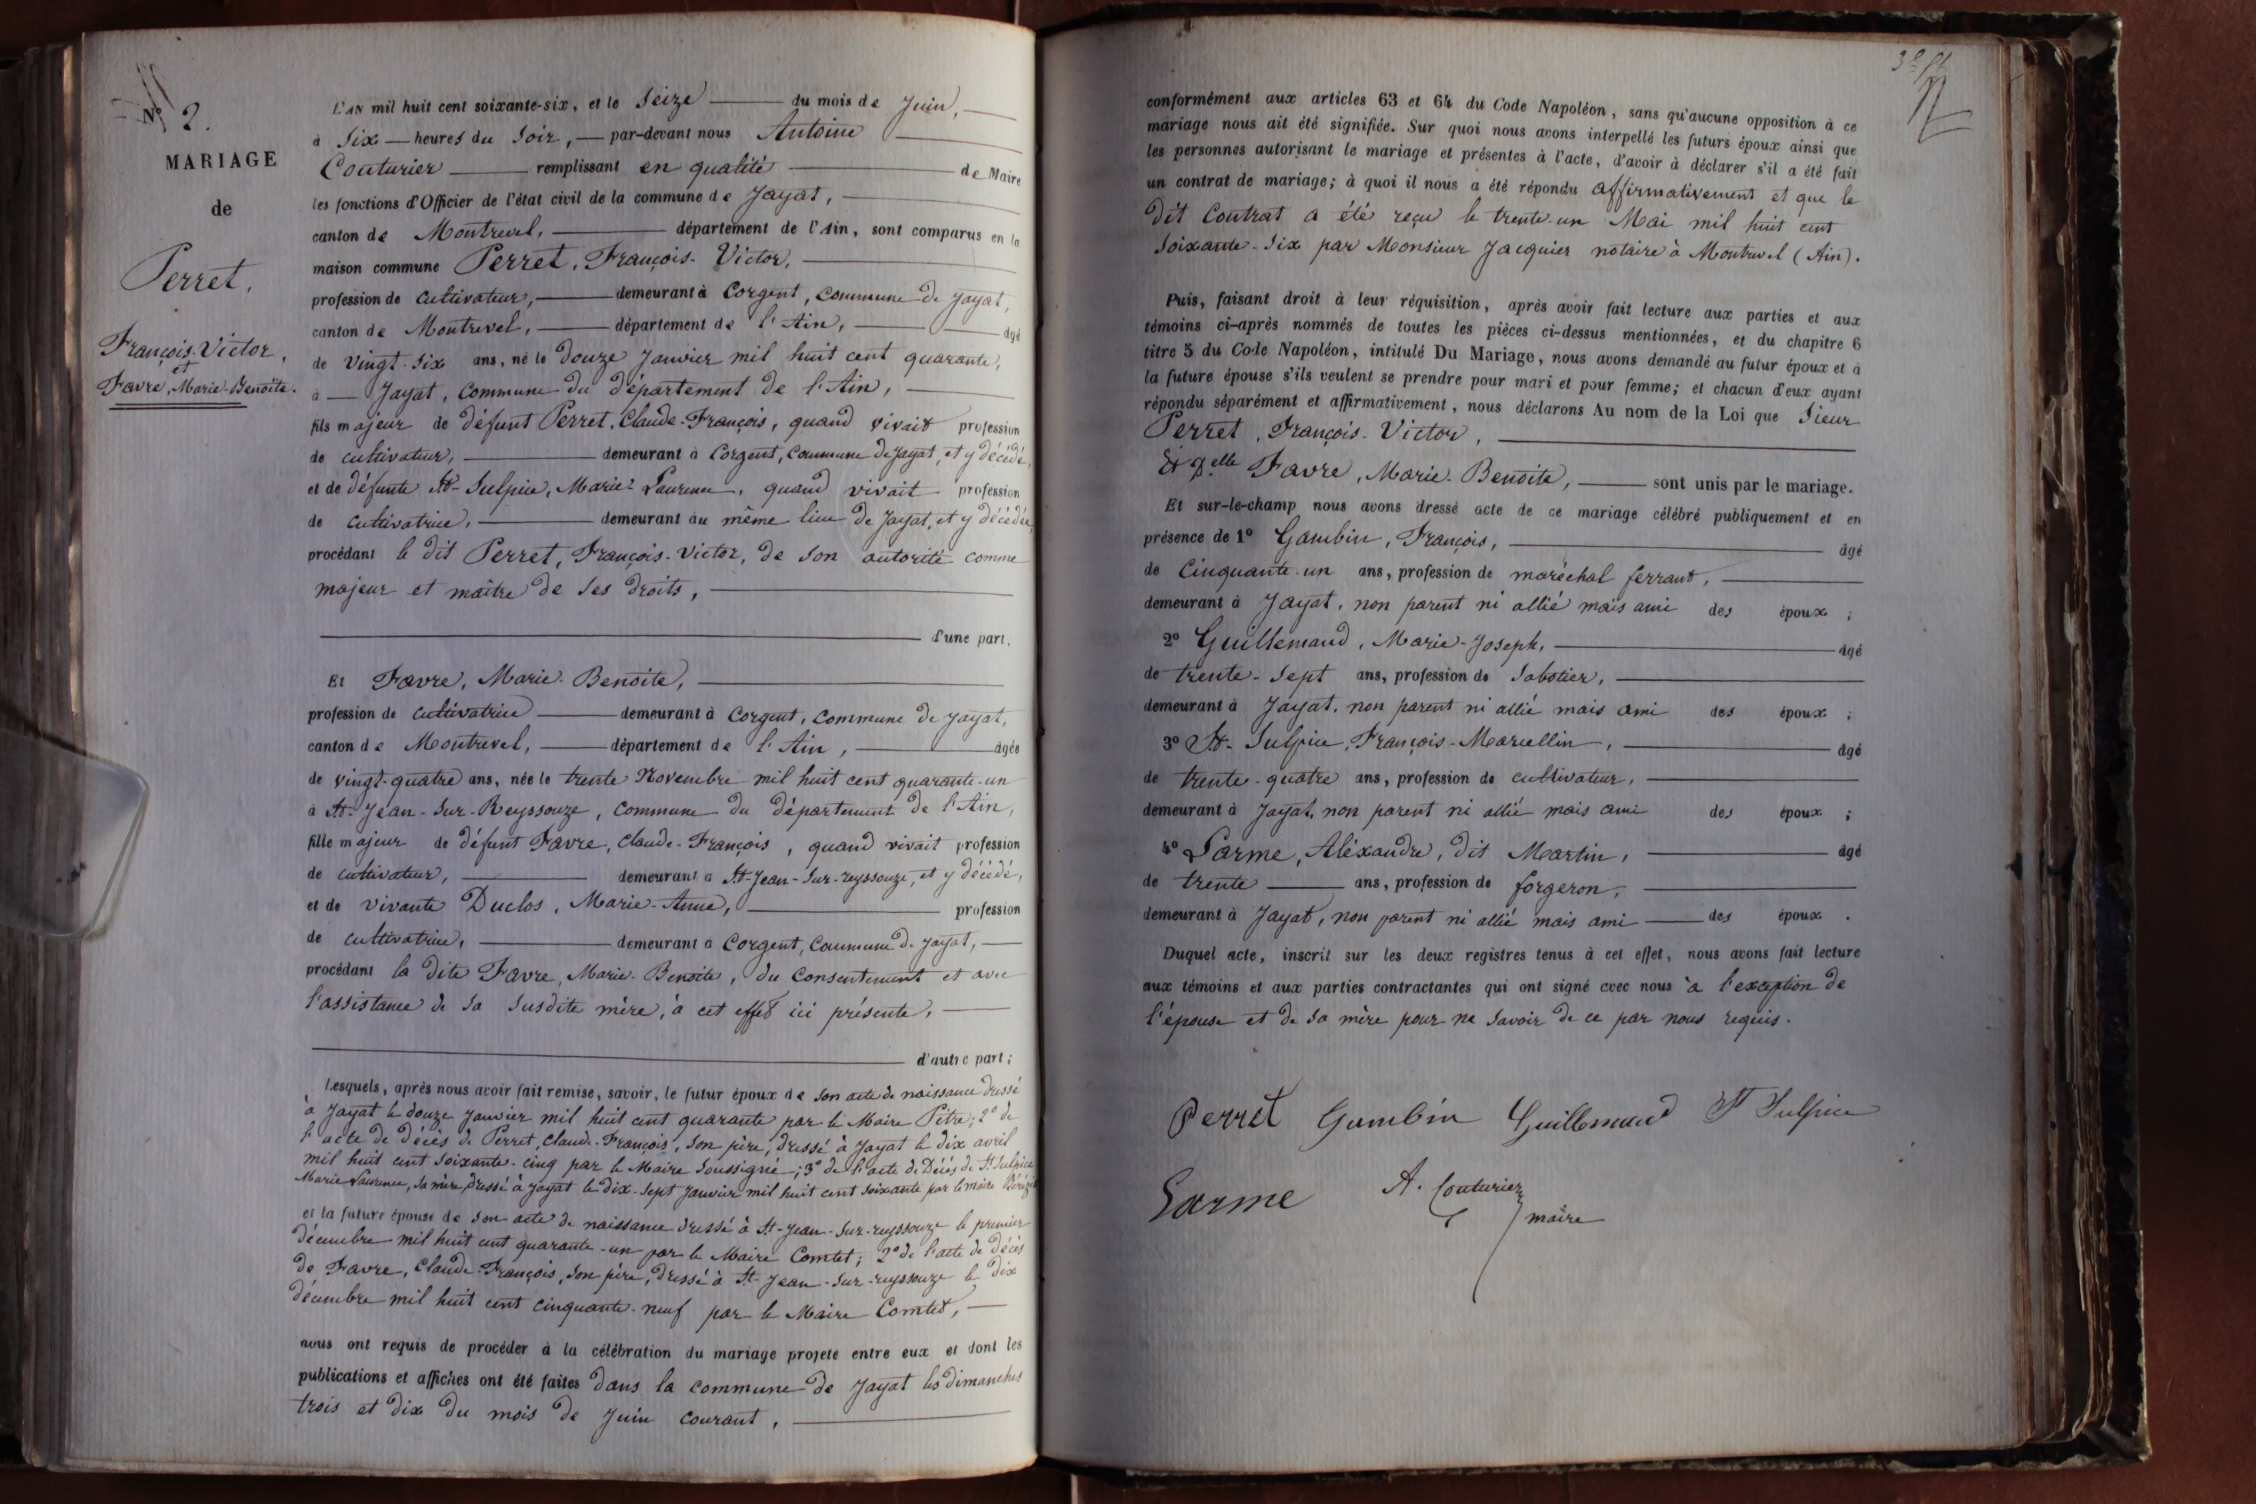 Nº 2.
MARIAGE
de
Perret,
François-Victor,
et
Favre, Marie-Benoite.
L'AN mil huit cent soixante-six, et le Seize du mois de Juin,
à Six heures du Soir, par-devant nous Antoine
Couturier remplissant en qualité de Maire
les fonctions d'Officier de l'état civil de la commune de Jayat,
canton de Montrevel, département de l'Ain, sont comparus en la
maison commune Perret, François-Victor,
profession de cultivateur, demeurant à Corgent, commune de Jayat,
canton de Montrevel, département de l'Ain, âgé
de vingt-six ans, né le douze Janvier mil huit cent quarante,
à Jayat, commune du département de l'Ain,
fils majeur de défunt Perret, Claude-François, quand vivait profession
de cultivateur, demeurant à Corgent, commune de Jayat, et y décédé,
et de défunte St-Sulpice, Marie-Laurence, quand vivait profession
de cultivatrice, demeurant au même lieu de Jayat, et y décédée,
procédant le dit Perret, François-Victor, de son autorité comme
majeur et maître de ses droits,
d'une part.
Et Favre, Marie-Benoite,
profession de cultivatrice demeurant à Corgent, commune de Jayat,
canton de Montrevel, département de l'Ain, âgée
de vingt-quatre ans, née le trente Novembre mil huit cent quarante-un
à St-Jean-Sur-Reyssouze, commune du département de l'Ain,
fille majeur de défunt Favre, Claude-François, quand vivait profession
de cultivateur, demeurant à St-Jean-Sur-reyssouze, et y décédé,
et de vivante Duclos, Marie-Anne, profession
de cultivatrice, demeurant à Corgent, commune de Jayat,
procédant la dite Favre, Marie-Benoite, du consentement et avec
l'assistance de sa susdite mère, à cet effet ici présente,
d'autre part;
Lesquels, après nous avoir fait remise, savoir, le futur époux de son acte de naissance dressé
à Jayat le douze Janvier mil huit cent quarante par le Maire Pitre; 2º de
l'acte de décès de Perret, Claude-François, son père, dressé à Jayat le dix avril
mil huit cent soixante-cinq par le Maire soussigné; 3º de l'acte de Décès de St Sulpice
Marie Laurence, sa mère, dressé à Jayat le dix-sept Janvier mil huit cent soixante par le maire
et la future épouse de son acte de naissance dressé à St-Jean-Sur-reyssouze le premier
décembre mil huit cent quarante-un par le Maire Comtet; 2º de l'acte de décès
de Favre, Claude-François, son père, dressé à St-Jean-Sur-reyssouze le dix
décembre mil huit cent cinquante-neuf par le Maire Comtet,
nous ont requis de procéder à la célébration du mariage projeté entre eux et dont les
publications et affiches ont été faites dans la commune de Jayat les dimanches
trois et dix du mois de Juin courant,
conformément aux articles 63 et 64 du Code Napoléon, sans qu'aucune opposition à ce
mariage nous ait été signifiée. Sur quoi nous avons interpellé les futurs époux ainsi que
les personnes autorisant le mariage et présentes à l'acte, d'avoir à déclarer s'il a été fait
un contrat de mariage; à quoi il nous a été répondu affirmativement et que le
dit Contrat a été reçu le trente-un Mai mil huit cent
soixante-six par Monsieur Jacquier notaire à Montrevel (Ain).
Puis, faisant droit à leur réquisition, après avoir fait lecture aux parties et aux
témoins ci-après nommés de toutes les pièces ci-dessus mentionnées, et du chapitre 6
titre 5 du Code Napoléon, intitulé Du Mariage, nous avons demandé au futur époux et à
la future épouse s'ils veulent se prendre pour mari et pour femme; et chacun d'eux ayant
répondu séparément et affirmativement, nous déclarons Au nom de la Loi que Sieur
Perret, François-Victor,
Et Delle Favre, Marie-Benoite, sont unis par le mariage.
Et sur-le-champ nous avons dressé acte de ce mariage célébré publiquement et en
présence de 1º Gambin, François, âgé
de Cinquante-un ans, profession de maréchal ferrant,
demeurant à Jayat, non parent ni allié mais ami des époux;
2º Guillemaud, Marie-Joseph, âgé
de trente-sept ans, profession de Sabotier,
demeurant à Jayat, non parent ni allié mais ami des époux;
3º St-Sulpice, François-Marcellin, âgé
de trente-quatre ans, profession de cultivateur,
demeurant à Jayat, non parent ni allié mais ami des époux;
4º Larme, Aléxandre, dit Martin, âgé
de trente ans, profession de forgeron,
demeurant à Jayat, non parent ni allié mais ami des époux.
Duquel acte, inscrit sur les deux registres tenus à cet effet, nous avons fait lecture
aux témoins et aux parties contractantes qui ont signé avec nous à l'exception de
l'épouse et de sa mère pour ne savoir de ce par nous requis.
Perret Gambin Guillemaud St Sulpice
Larme A. Couturier
maire